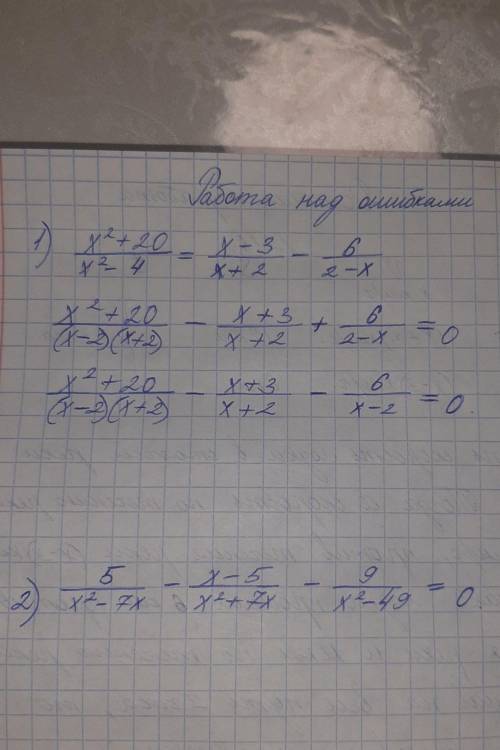 Работа над ошибками
1) (x² + 20)/(x² - 4) = (x - 3)/(x + 2) - 6/(2 - x)
(x² + 20)/((x - 2)(x + 2)) - (x + 3)/(x + 2) + 6/(2 - x) = 0
(x² + 20)/((x - 2)(x + 2)) - (x + 3)/(x + 2) - 6/(x - 2) = 0.
2) 5/(x² - 7x) - (x - 5)/(x² + 7x) - 9/(x² - 49) = 0.